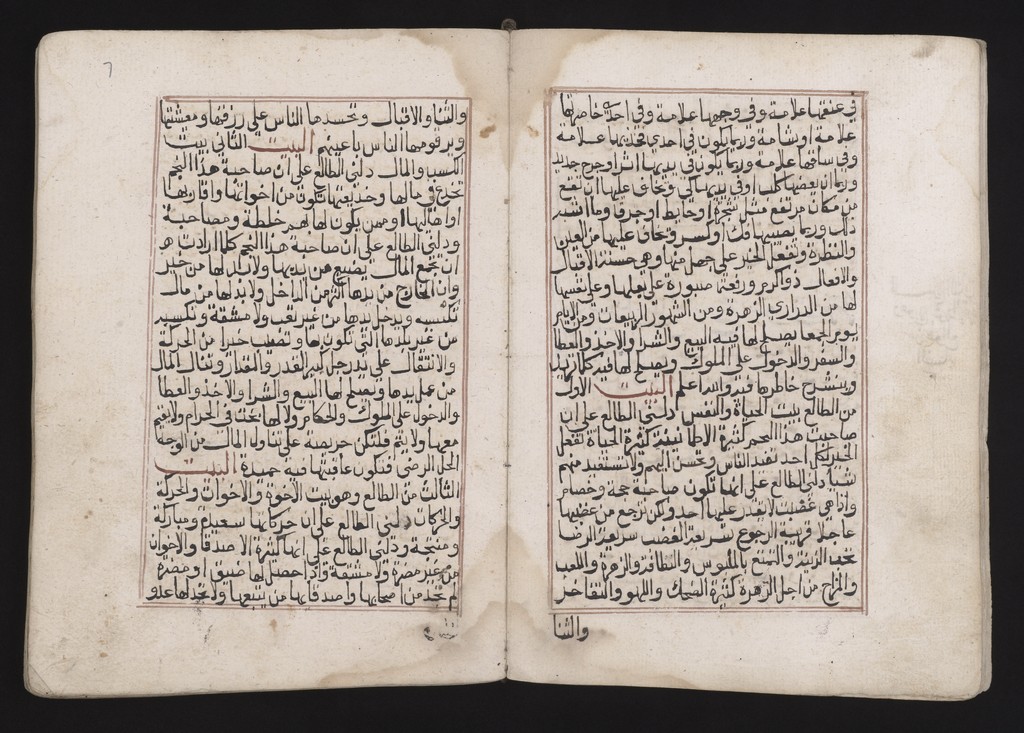 في عنقها علامة وفي وجهها علامة وفي احد خاصرتها
علامة او شامة وربما يكون في احدي فخذيها علامة
وفي ساقها علامة وربما يكون في يديها اثر اوجرح جديد
وربما ان يعضها كلب او في يديها كي ويخاف عليها ان تقع
من مكان مرتفع مثل شجرة او حايط او جرف وما اشبه
ذلك وربما يصيبها فك او كسر ويخاف عليها من العين
والنظرة وتفعل الخير علي جهل منها وهي حسنة الاقبال
والافعال ذو اكرم ورفعة صبورة علي بعلها وعلي نفسها
لها من الدراري الزهرة ومن الشهور الربيعان ومن الايام
يوم الجمعا يصلح لها فيه البيع والشرا والاخذ والعطا
والسفر والدخول علي الملوك ويصلح لها فيه كما تريد
وينشرح خاطرها فيه والله اعلم البيت الاول
من الطالع بيت الحياة والنفس دلني الطالع علي ان
صاحبت هذا النجم كثيرة الاطمانينة كثيرة الحياة تفعل
الخير بكل احد تفيد الناس وتحسن اليهم ولا تستفيد منهم
شيا دلني الطالع علي انها تكون صاحبة حجة وخصام
واذا هي غضبت لا يقدر عليها احد ولكن ترجع من غضبها
عاجلا قريبة الرجوع سريعة الغضب سريعة الرضا
تحب الزينة والتمتع بالملبوس والنظافة والزهرة واللعب
والمزاح من اجل الزهرة كثيرة الضحك واللهو والتفاخر
والثنا
٦
والثنا والاقبال وتحسدها الناس علي رزقها ومعيشتها
ويرقوهما الناس باعينهم البيت الثاني بيت
الكسب والمال دلني الطالع علي ان صاحبة هذا النجم
تخدع في مالها وخديعتها تكون من اخواتها واقاربها
او اهاليها او ممن يكون لها لهم خلطة ومصاحبة
ودلني الطالع علي ان صاحبة هذا النجم كلما ارادت
ان تجمع المال يضيع من يديها ولا بد لها من خير
وان الخارج من يدها اكثر من الداخل ولا بد لها من مال
تكتسبه ويدخل يدها من غير تعب ولا مشقة وتكسب
من غير بلدها التي تكون بها وتصب خيرا من الحركة
والانتقال علي يد رجل كبير القدر والمقدار وتنال المال
من عمل يدها ويصلح لها البيع والشرا والاخذ والعطا
والدخول علي الملوك والحكام ولا لها بخت في الحرام ولا يقيم
معها ولا يتم فلتكن حريصة علي تناول المال من الوجه
الحل الرضي فتكون عاقبتها فيه حميدة البيت
الثالث من الطالع وهو بيت الاخوة والاخوات والحركة
والحركات دلني الطالع علي ان حركاتها سعيدة ومباركة
ومنتجة ودلني الطالع علي انها كثيرة الاصدقا والاخوان
من غير مضرة ولا مشقة واذا حصل لها ضيق او مضرة
لم تجد من اصحابها واصدقايها من يتبعها ولا تجد لها عدو